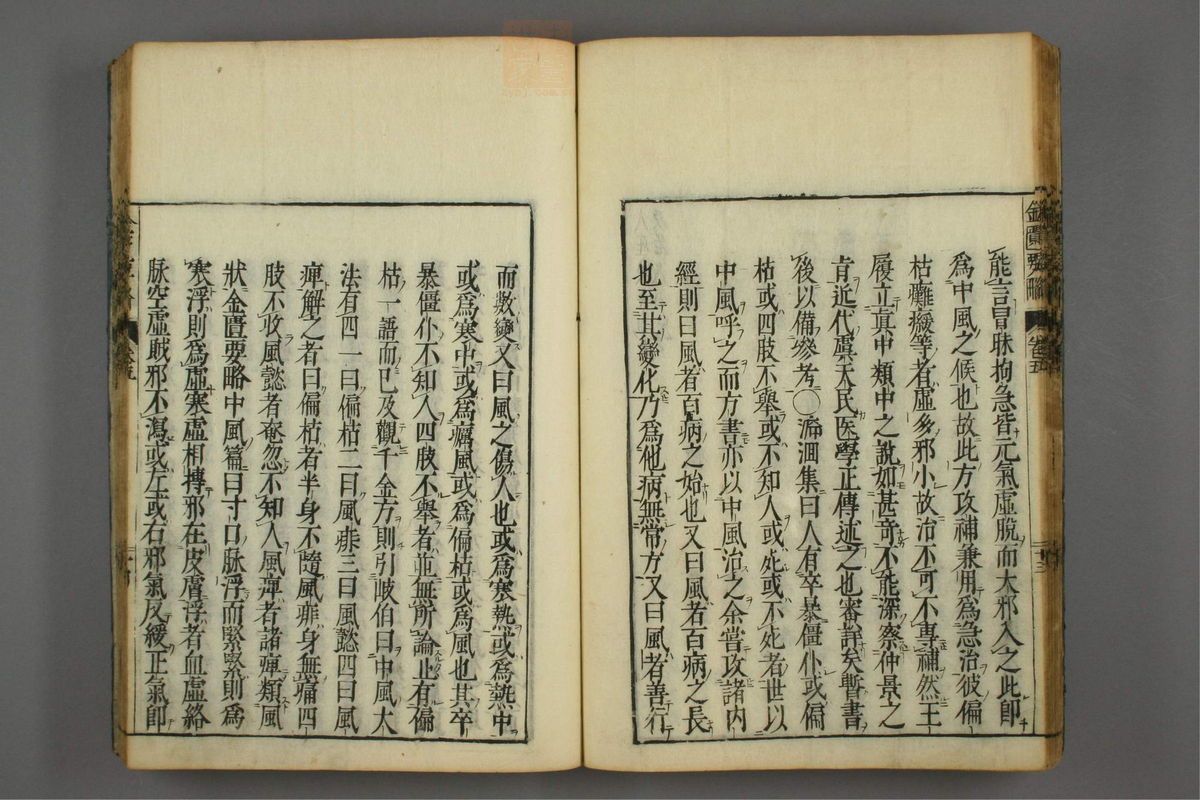 能言冒昧拘急皆元氣虛脫而大邪入之此卽
為中風之候也故此方攻補兼用為急治彼偏
枯難緩等者虛多邪小故治不可不專補然王
履立真中類中之說如甚奇不能深察仲景之
肯近代虞天民医學正傳述之也審詳矣暫書
後以備參考〇泝洄集曰人有卒暴僵仆或偏
枯或四肢不舉或不知人或死或不死者世以
中風呼之而方書亦以中風治之余嘗攻諸內
經則曰風者百病之始也又曰風者百病之長
也至其變化乃為他病無常方又曰風者善行
而數變又曰風之傷人也或為寒熱或為熱中
或為寒中或為癘風或為偏枯或為風也其卒
暴僵仆不知人四肢不舉者並無所論止有偏
枯一語而已及觀千金方則引岐伯曰中風大
法有四一曰偏枯二曰風痱三曰風懿四曰風
痺解之者曰偏枯者半身不隨風痱身無痛四
肢不收風懿者奄忽不知人風痺者諸痺類風
狀金匱要略中風篇曰寸口脉浮而緊緊則為
寒浮則為虛寒虛相摶邪在皮膚浮者血虛絡
脉空虛賊邪不瀉或左或右邪氣反緩正氣卽